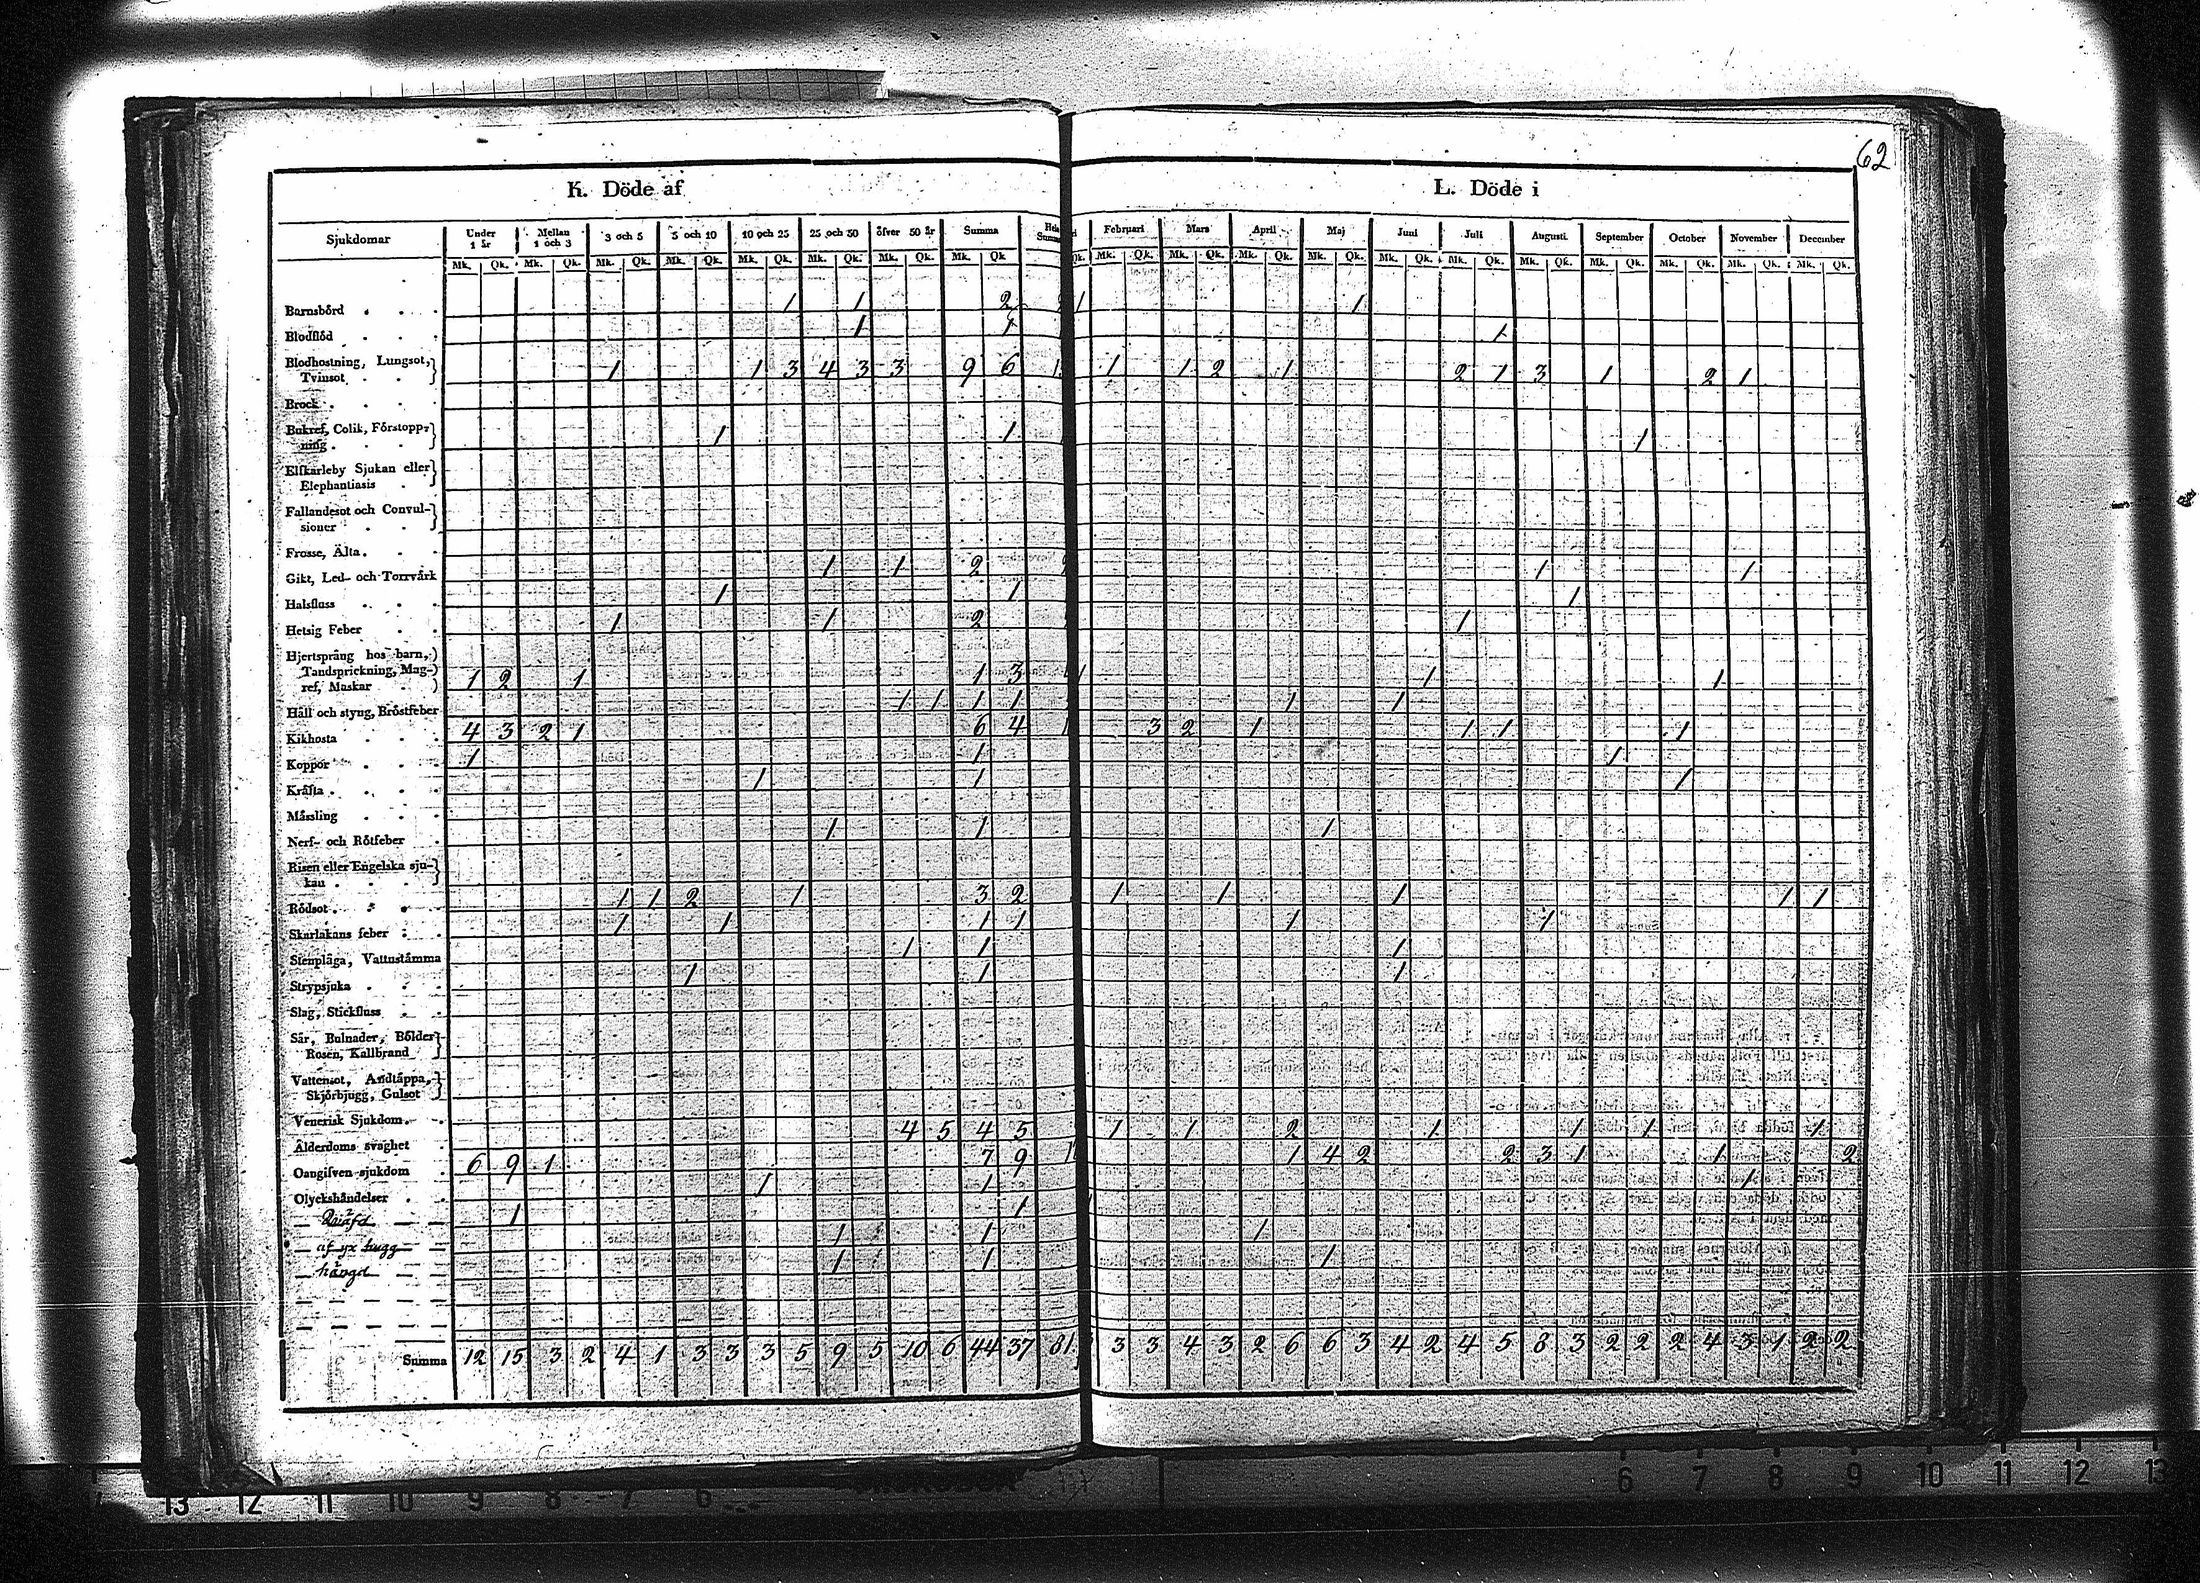 62
K. Döde af
L. Döde i
Sjukdomar Under 1 år Mellan 1 och 3 3 och 5 5 och 10 10 och 25 25 och 50 öfver 50 år Summa Februari Mars April Maj Juni Juli Augusti September October November December
Mk. Qk. Mk. Qk. Mk. Qk. Mk. Qk. Mk. Qk. Mk. Qk. Mk. Qk. Mk. Qk Qk. Mk. Qk. Mk. Qk. Mk. Qk. Mk. Qk. Mk. Qk. Mk. Qk. Mk. Qk. Mk. Qk. Mk. Qk. Mk. Qk. Mk. Qk.
Barnsbörd 1 1 2 1 1
Blodflöd 1 1 1
Blodhostning, Lungsot,
Tvinsot 1 1 3 4 3 3 9 6 1 1 2 1 2 1 3 1 2 1
Brock
Bukref, Colik, Förstopp-
ning 1 1 1
Elfkarleby Sjukan eller
Elephantiasis
Fallandesot och Convul-
sioner
Frosse, Älta
Gikt, Led- och Torrvärk 1 1 2 1 1
Halsfluss 1 1 1
Hetsig Feber 1 1 2 1
Hjertsprång hos barn,
Tandsprickning, Mag-
ref, Maskar 1 2 1 1 3 1 1 1
Håll och styng, Bröstfeber 1 1 1 1 1 1
Kikhosta 4 3 2 1 6 4 3 2 1 1 1 1
Koppor 1 1 1
Kräfta 1 1 1
Mässling
Nerf- och Rötfeber 1 1 1
Risen eller Engelska sju-
kan
Rödsot 1 1 2 1 3 2 1 1 1 1 1
Skarlakans feber 1 1 1 1 1 1
Stenplåga, Vattnstämma 1 1 1
Strypsjuka 1 1 1
Slag, Stickfluss
Sår, Bulnader, Bölder
Rosen, Kallbrand
Vattensot, Andtäppa,
Skjörbjugg, Gulsot
Venerisk Sjukdom
Ålderdoms svaghet 4 5 4 5 1 1 2 1 1 1 1
Oangifven sjukdom 6 9 1 7 9 1 4 2 2 3 1 1 2
Olyckshändelser 1 1 1
Quäfd 1 1
af yx hugg 1 1 1
hängd 1 1 1
Summa 12 15 3 2 4 1 3 3 3 5 9 5 10 6 44 37 81 3 3 4 3 2 6 6 3 4 2 4 5 8 3 2 2 2 4 3 1 2 2
13 12 11 10 9 8 7 6 6 7 8 9 10 11 12 13